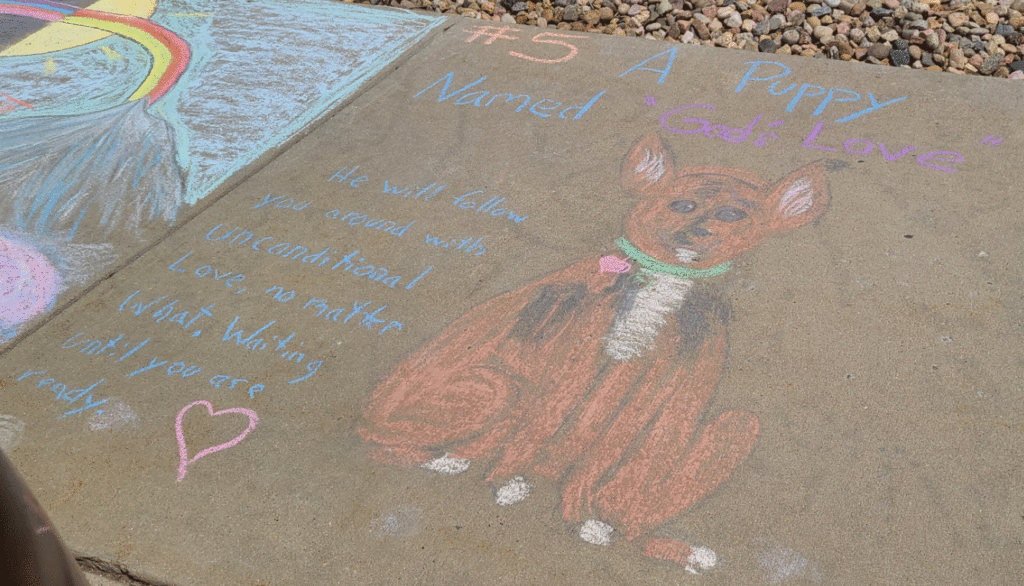 #5 A Puppy
Named "God's Love"
He will follow
you around with
unconditional
Love, no matter
What. Waiting
until you are
ready